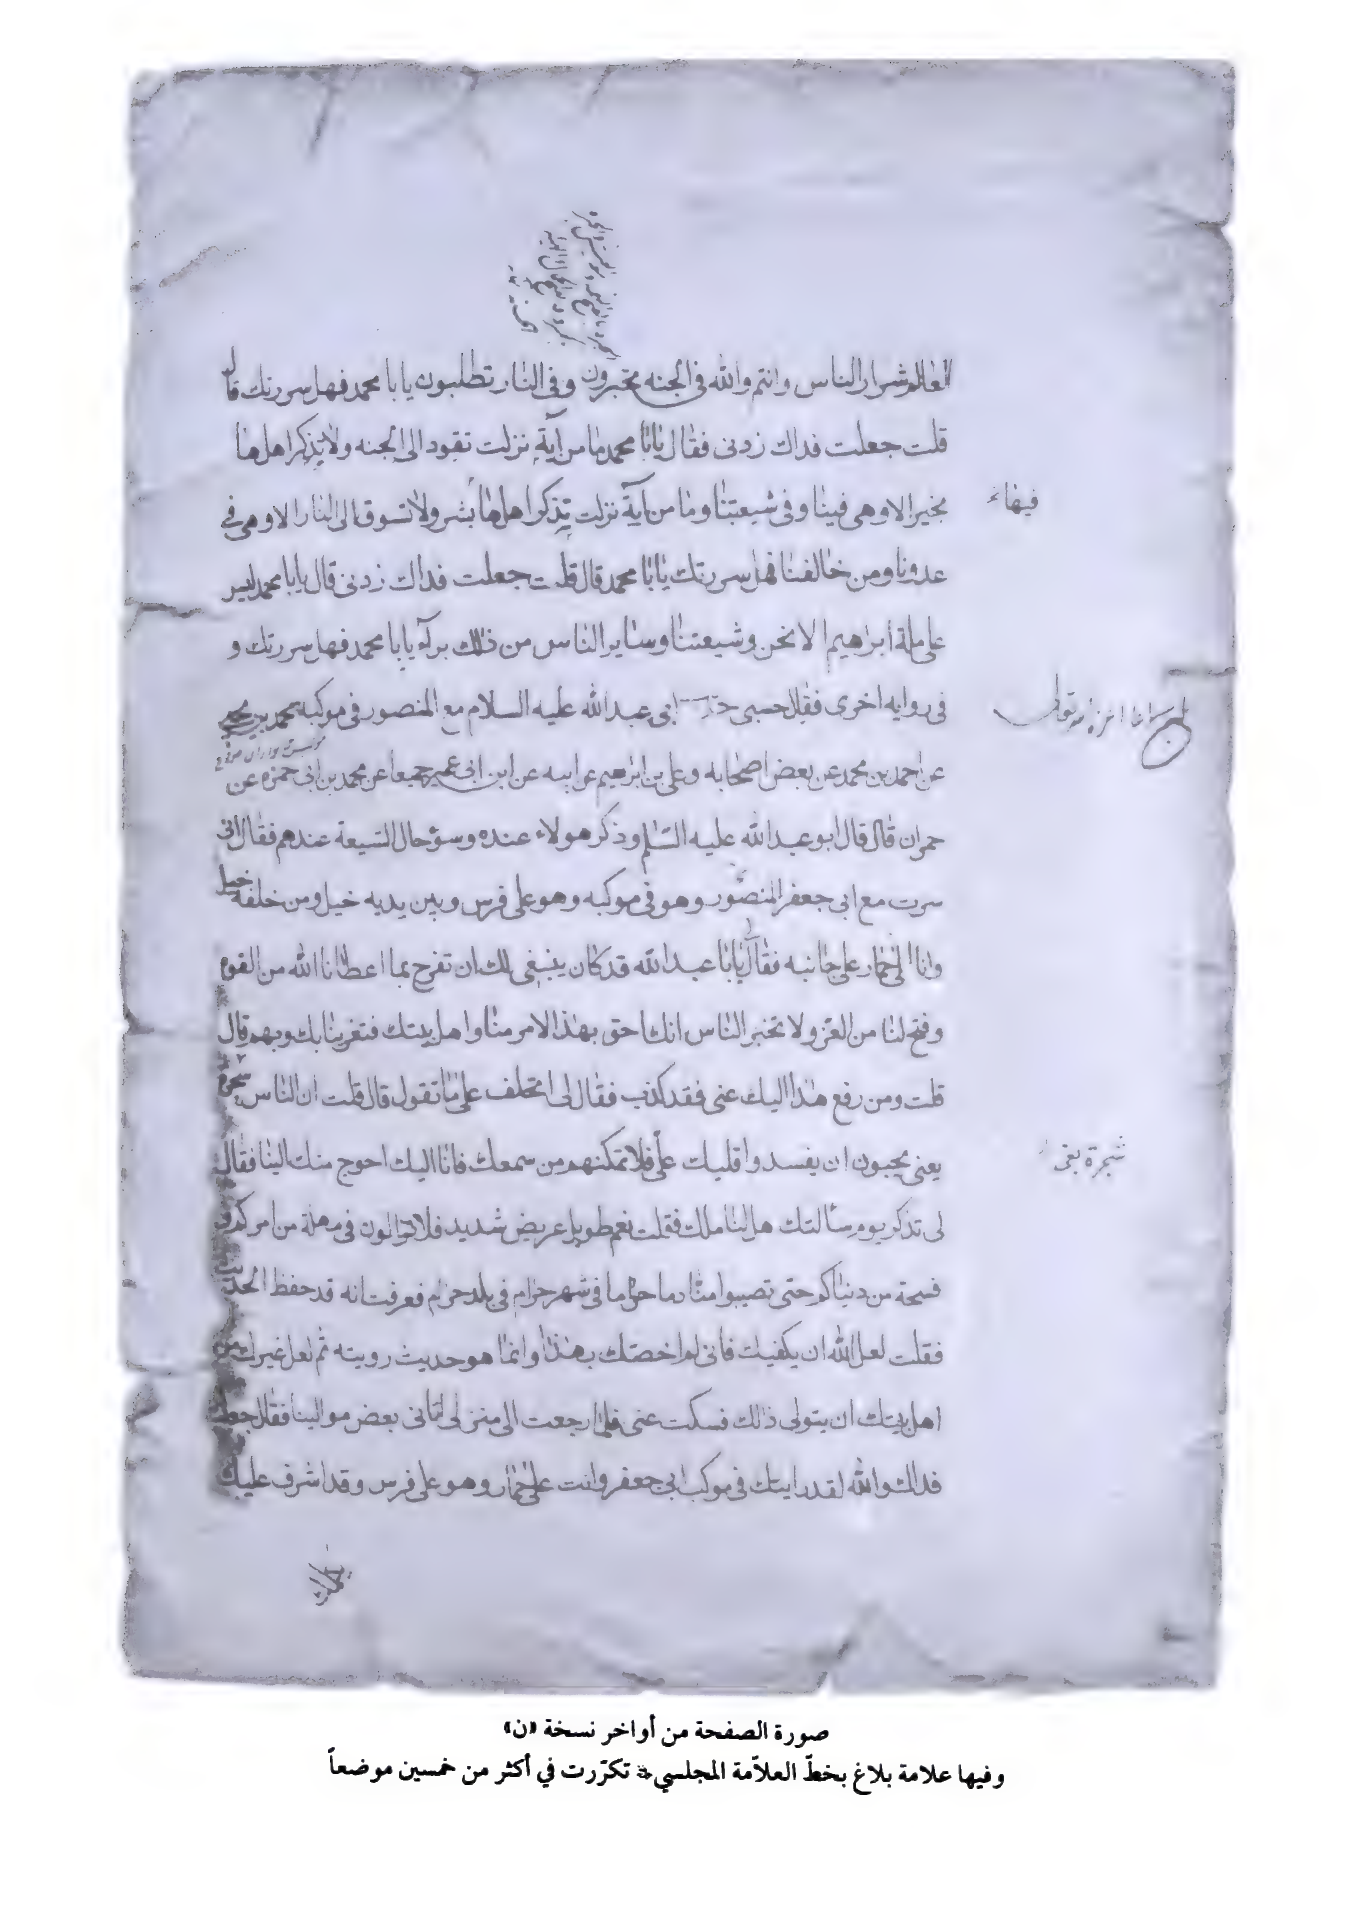 العالم شرار الناس وانتم والله في الجنه تحبرون وفى النار تطلبون يا با محمد فهل سررتك قال
قلت جعلت فداك زدنى فقال يا با محمد ما من آية نزلت تقود الى الجنه ولا يذكر اهلها
بخير الا وهى فينا وفى شيعتنا وما من آية نزلت تذكر اهلها بشر ولا تسوق الى النار الا وهى فى
فيها
عدونا ومن خالفنا فهل سررتك يا با محمد قال قلت جعلت فداك زدنى قال يا با محمد ليس
على ملة ابراهيم الا نحن وشيعتنا وساير الناس من ذلك برآء يا با محمد فهل سررتك و
فى روايه اخرى فقال حسبى ابى عبد الله عليه السلام مع المنصور فى موكبه محمد بن يحيى
عن احمد بن محمد عن بعض اصحابه وعلى بن ابراهيم عن ابيه عن ابن ابى عمير جميعا عن محمد بن ابى حمزه عن
حمران قال قال ابو عبد الله عليه السلم وذكر هولاء عنده وسوء حال الشيعة عندهم فقال انى
سرت مع ابى جعفر المنصور وهو فى موكبه وهو على فرس وبين يديه خيل ومن خلفه خيل
وانا على حمار على جانبه فقال يا با عبد الله قد كان ينبغى لك ان تفرح بما اعطانا الله من القوه
وفتح لنا من العز ولا تخبر الناس انك احق بهذا الامر منا واهل بيتك فتغرينا بك وبهم قال
قلت ومن رفع هذا اليك عنى فقد كذب فقال لى اتحلف على ما تقول قال قلت ان الناس سحرة
يعنى يحبون ان يفسدوا قلبك على فلا تمكنهم من سمعك فانا اليك احوج منك الينا فقال
شجرة بغى
لى تذكر يوم سألتك هل لنا ملك فقلت نعم طويل عريض شديد فلا تزالون فى مهلة من امركم و
فسحة من دنياكم حتى تصيبوا منا دما حراما فى شهر حرام فى بلد حرام فعرفت انه قد حفظ الحديث
فقلت لعل الله ان يكفيك فانى لم اخصك بهذا وانما هو حديث رويته ثم لعل غيرك من
اهل بيتك ان يتولى ذلك فسكت عنى فلما رجعت الى منزلى اتانى بعض موالينا فقال جعلت
فداك والله لقد رايتك فى موكب ابى جعفر وانت على حمار وهو على فرس وقد اشرف عليك
صورة الصفحة من أواخر نسخة «ن»
وفيها علامة بلاغ بخطّ العلاّمة المجلسي تكرّرت في أكثر من خمسين موضعاً